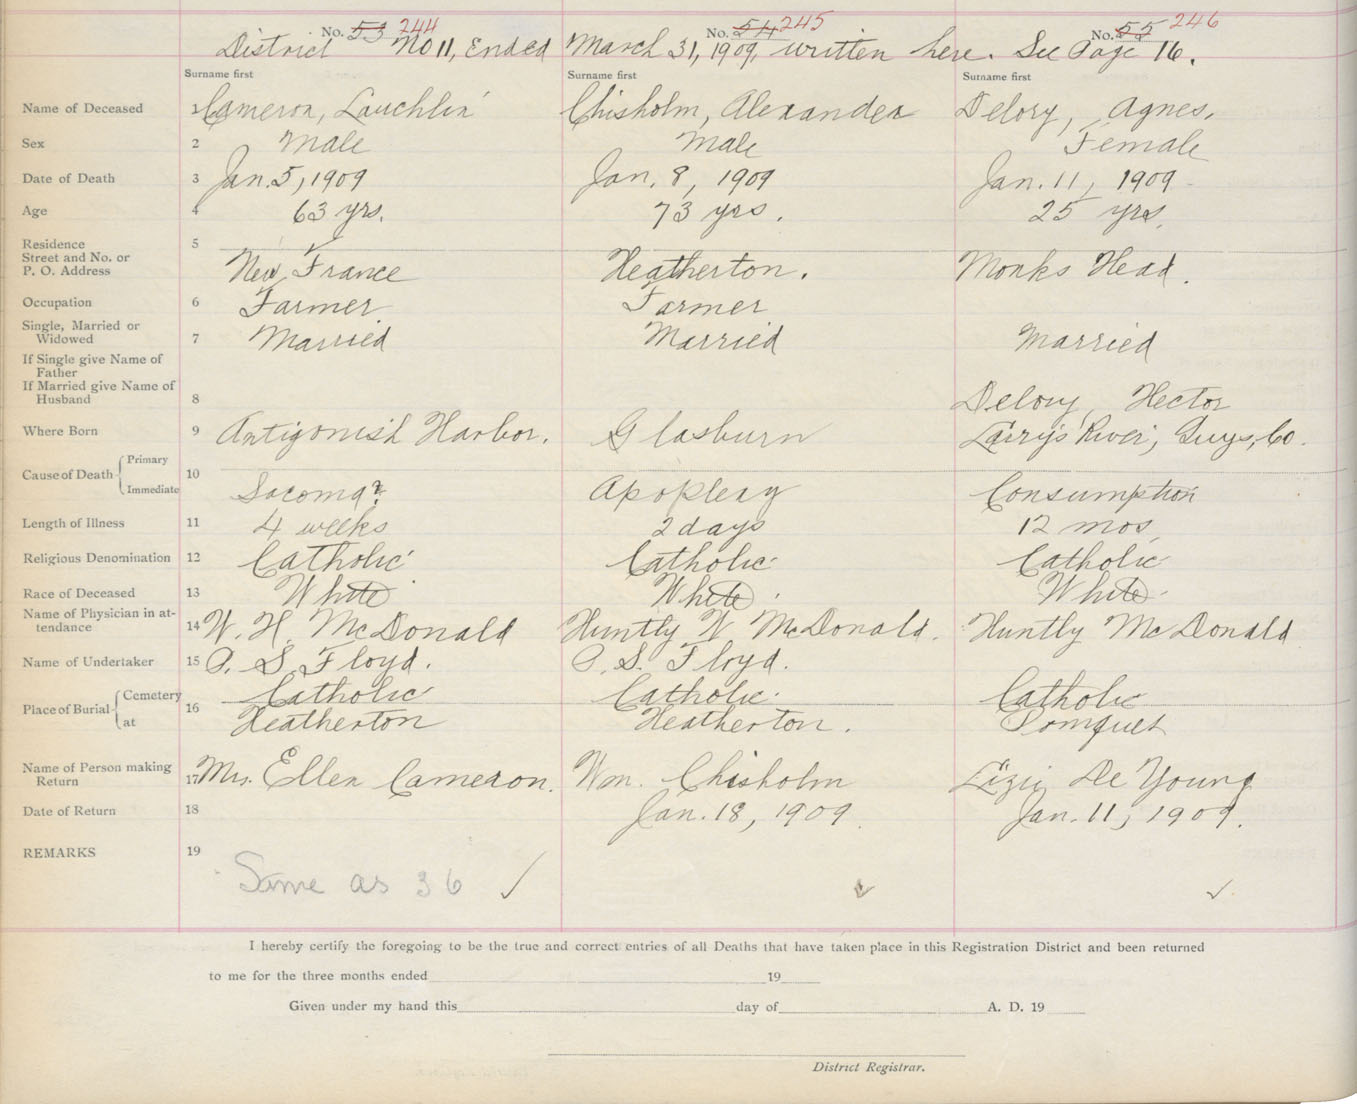 No. 53 244 No. 54 245 No. 55 246
District No 11, Ended March 31, 1909, written here. See Page 16.
Surname first Surname first Surname first
Name of Deceased 1 Cameron, Lauchlin Chisholm, Alexander Delory, Agnes.
Sex 2 Male Male Female
Date of Death 3 Jan. 5, 1909 Jan. 8, 1909 Jan. 11, 1909
Age 4 63 yrs. 73 yrs. 25 yrs.
Residence 5
Street and No. or
P. O. Address New France Heatherton. Monks Head.
Occupation 6 Farmer Farmer
Single, Married or
Widowed 7 Married Married Married
If Single give Name of
Father
If Married give Name of
Husband 8 Delory, Hector
Where Born 9 Antigonish Harbor. Glasburn Larry's River, Guys, Co.
Cause of Death Primary 10
Immediate Sacoma? Apoplexy Consumption
Length of Illness 11 4 weeks 2 days 12 mos
Religious Denomination 12 Catholic Catholic Catholic
Race of Deceased 13 White White White
Name of Physician in at-
tendance 14 W. H. McDonald Huntly W McDonald. Huntly McDonald
Name of Undertaker 15 P. S. Floyd. P. S. Floyd.
Place of Burial Cemetery 16 Catholic Catholic Catholic
at Heatherton Heatherton. Pomquet
Name of Person making
Return 17 Mrs. Ellen Cameron. Wm. Chisholm Lizie De Young
Date of Return 18 Jan. 18, 1909 Jan. 11, 1909.
REMARKS 19
Same as 36 ✓ ✓ ✓
I hereby certify the foregoing to be the true and correct entries of all Deaths that have taken place in this Registration District and been returned
to me for the three months ended 19
Given under my hand this day of A. D. 19
District Registrar.